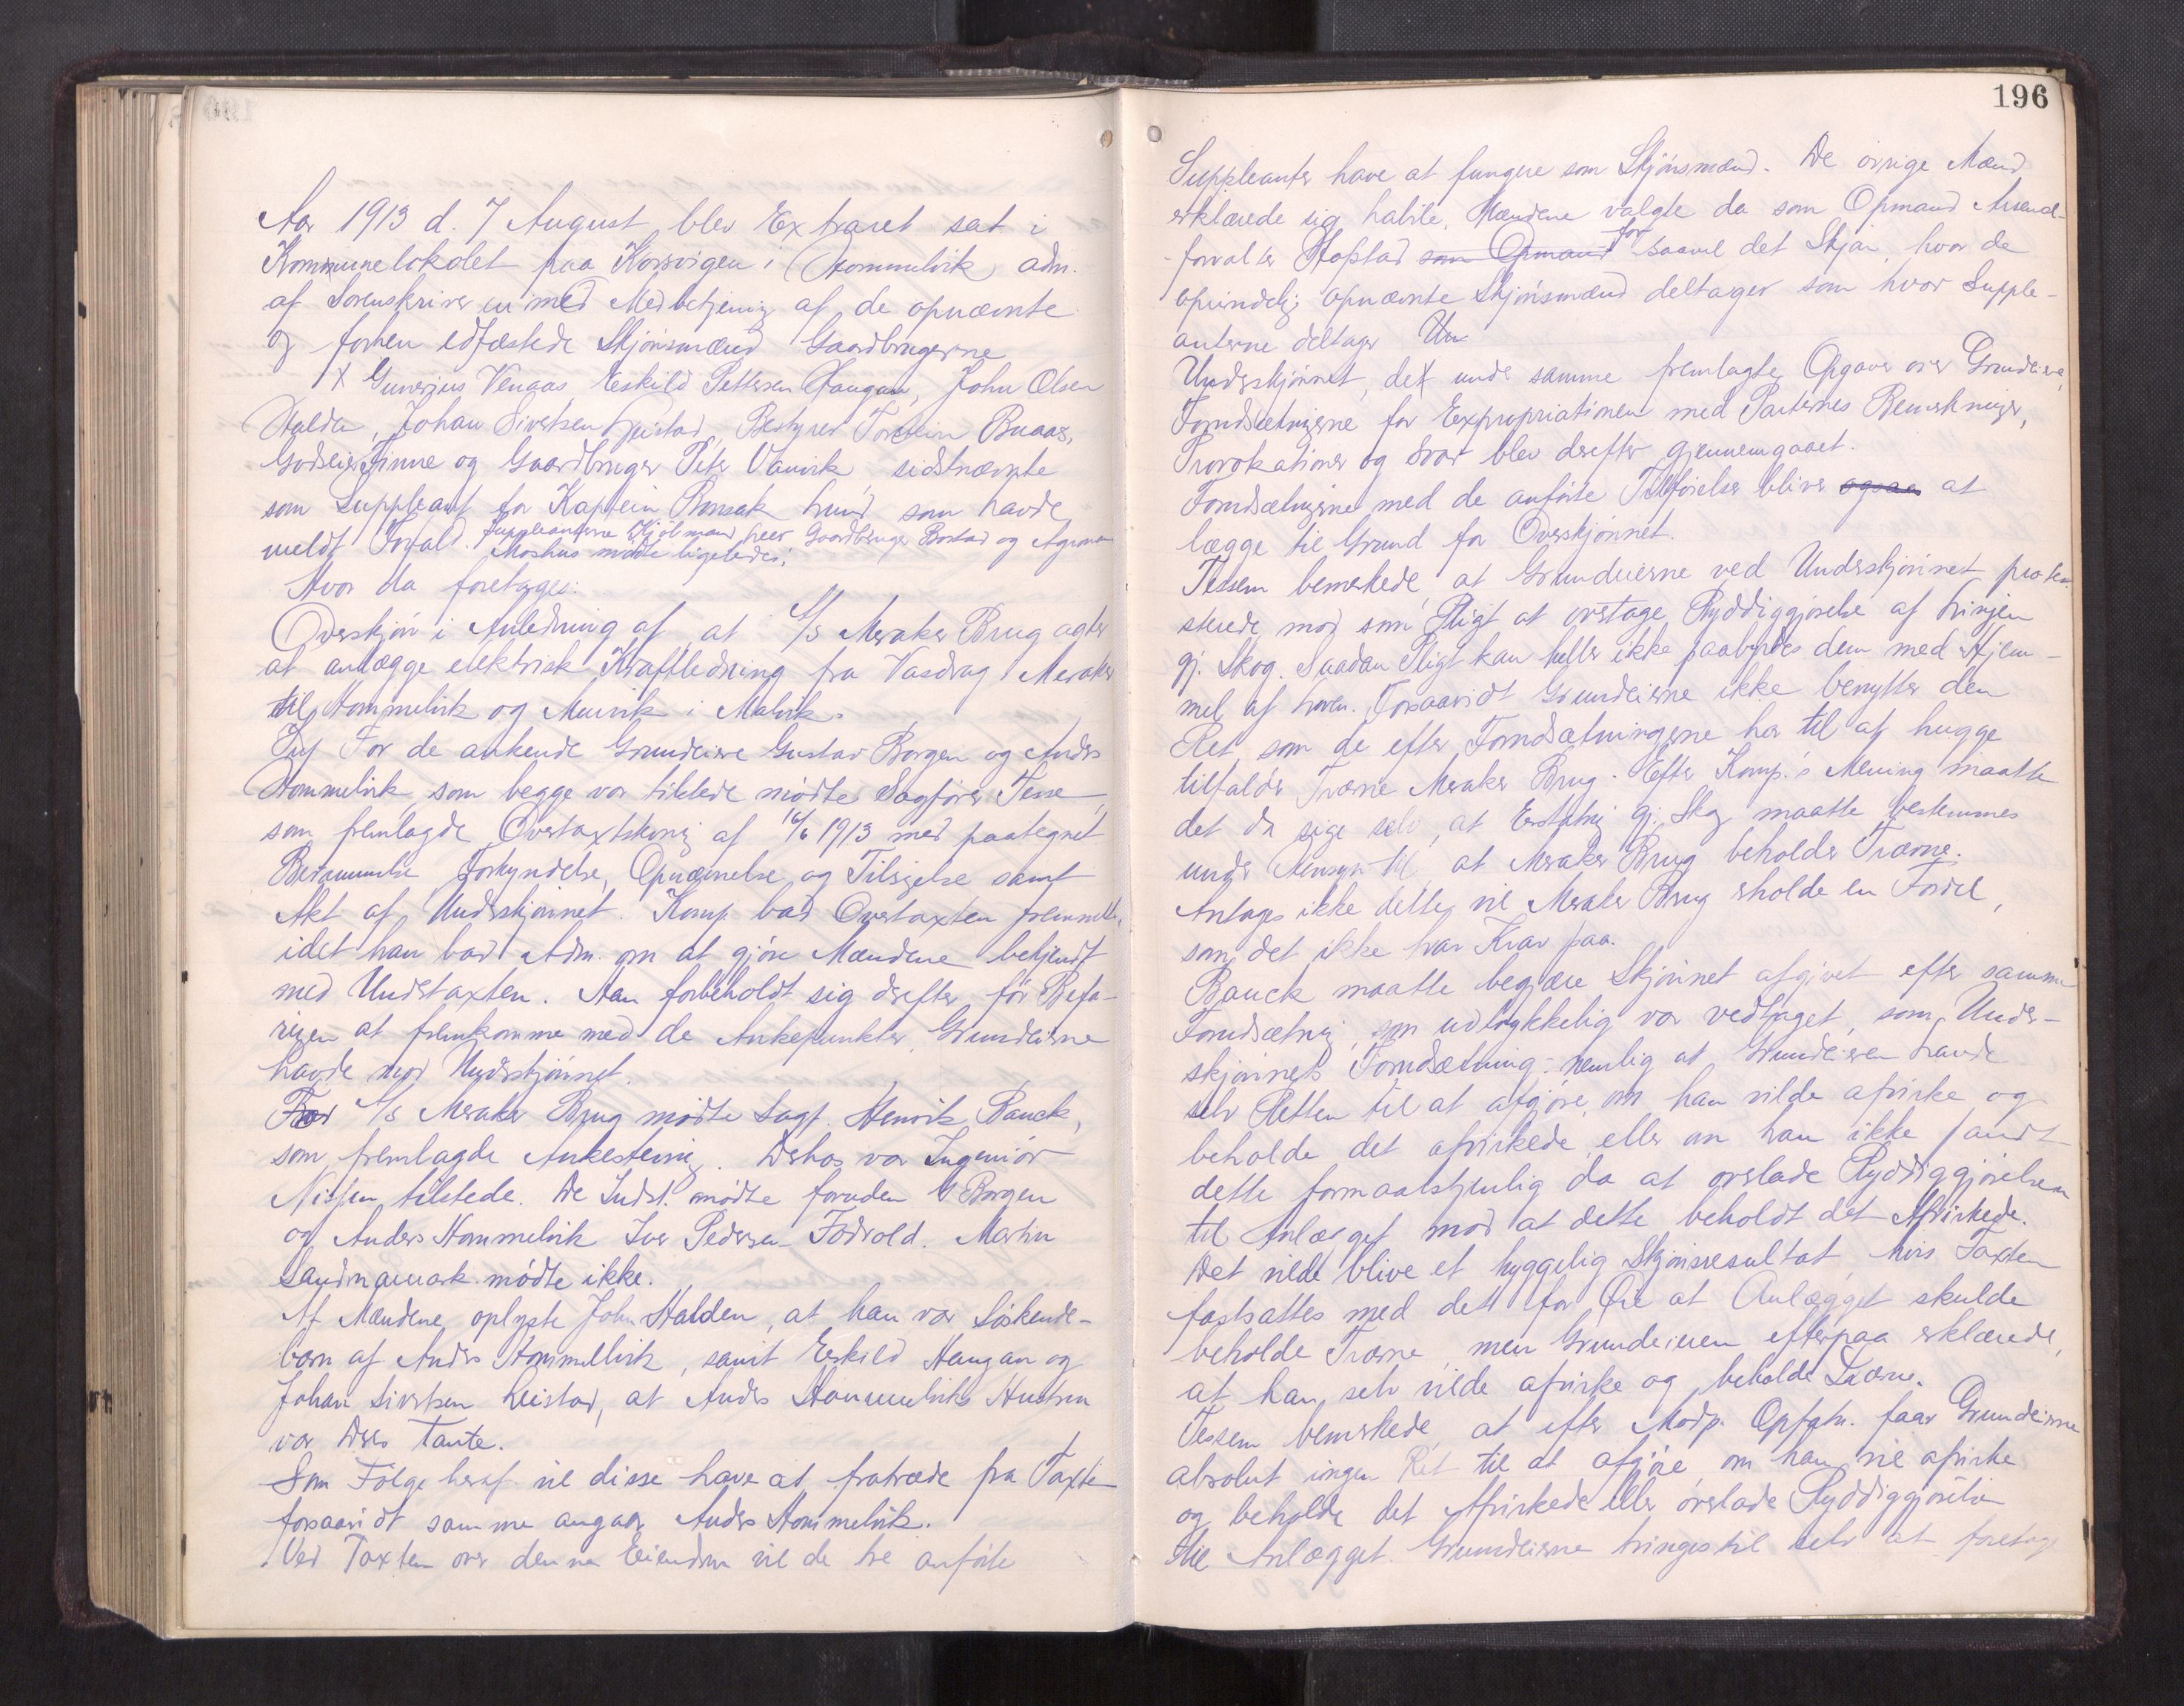 Aar 1913 d. 7 August blev Extraret sat i
Kommunelokalet paa Korsvigen i Hommelvik adm.
af Sorenskriveren med Medbetjening af de opnævnte
og forhen edfæstede Skjönsmænd Gaardbrugerne
Gunerius Venaas Eskild Pettersen Haugan, John Olsen
Halden, Johan Sivertsen Leistad, Bestyrer Torstein Buaas,
Godseier Finne og Gaardbruger Peter Vanvik sidstnævnte
som Suppleant for Kaptein Bonsak Lund som havde
meldt Forfald. Suppleanterne Gaardbruger Borstad og Agronom
Moshus mödte ligeledes.
Hvor da foretoges:
Overskjön i Anledning af at A/S Meraker Brug agter
at anlægge elektrisk Kraftledning fra Vasdrag i Meraker
til Hommelvik og Muruvik i Malvik.
For de ankende Grundeiere Gustav Borgen og Anders
Hommelvik som begge var tilstede mödte Sagförer Tessem,
som fremlagde Overtaxtstevning af 16/6 1913 med paategnet
Berammelse Forkyndelse, Opnævnelse og Tilsigelse samt
Akt af Underskjönnet. Komp. bad Overtaxten fremmet,
idet han bad Adm. om at gjöre Mændene bekjendt
med Undertaxten. Han forbeholdt sig derefter för Befa-
ringen at fremkomme med de Ankepunkter Grundeierne
havde mod Underskjönnet.
For A/S Meraker Brug mödte Sagf. Henrik Bauck,
som fremlagde Ankestevning. Derhos var Ingeniör
Nissen tilstede. De Indst. mödte foruden G Borgen
og Anders Hommelvik Iver Pedersen Fodvold. Martin
Sandmamark mödte ikke.
Af Mændene oplyste John Halden, at han var Söskende-
barn af Anders Hommelvik, samt Eskild Haugan og
Johan Sivertsen Leistad, at Anders Hommelviks Hustru
var deres Tante.
Som Fölge heraf vil disse have at fratræde fra Taxten
forsaavidt samme angaar Anders Hommelvik.
Ved Taxten over denne Eiendom vil de tre anförte
196
Suppleanter have at fungere som Skjönsmænd. De övrige Mænd
erklærede sig habile. Mændene valgte da som Opmand Arsenal-
forvalter Hopstad som Opmand for saavel det Skjön, hvor de
oprindelig opnævnte Skjönsmænd deltager som hvor Supple-
anterne deltager Un
Underskjönnet, det under samme fremlagte Opgaver over Grundeiere,
Forudsætningerne for Expropriationen med Parternes Bemerkninger,
Provokationer og Svar blev derefter gjennemgaaet.
Forudsætningerne med de anförte Tilföielser bliver ogsaa at
lægge til Grund for Overskjönnet.
Tessem bemerkede at Grundeierne ved Underskjönnet prote-
sterede mod som Pligt at overtage Ryddiggjörelse af Linjen
gj. Skog. Saadan Pligt kan heller ikke paabyrdes dem med Hjem-
mel af Loven. Forsaavidt Grundeierne ikke benytter den
Ret som de efter Forudsætningerne har til at hugge
tilfalder Træerne Meraker Brug. Efter Komp.'s Mening maatte
det da sige selv, at Erstatning gj. Skog maatte bestemmes
under Hensyn til at Meraker Brug beholder Træerne.
Antages ikke dette vil Meraker Brug erholde en Fordel,
som det ikke har Krav paa.
Bauck maatte begjære Skjönnet afgivet efter samme
Forudsætning, som udtrykkelig var vedtaget, som Under-
skjönnets Forudsætning: nemlig at Grundeieren havde
selv Retten til at afgjöre, om han vilde afvirke og
beholde det afvirkede eller om han ikke fandt
dette formaalstjenlig da at overlade Ryddiggjörelsen
til Anlægget mod at dette beholdt det Afvirkede.
Det vilde blive et hyggelig Skjönsresultat, hvis Taxten
fastsattes med dette for Öie at Anlægget skulde
beholde Træerne, men Grundeieren efterpaa erklærede,
at han selv vilde afvirke og beholde Træerne.
Tessem bemerkede, at efter Modp. Opfatn. faar Grundeierne
absolut ingen Ret til at afgjöre om han vil afvirke
og beholde det Afvirkede eller overlade Ryddiggjörelsen
til Anlægget. Grundeierne tvinges til selv at foretage